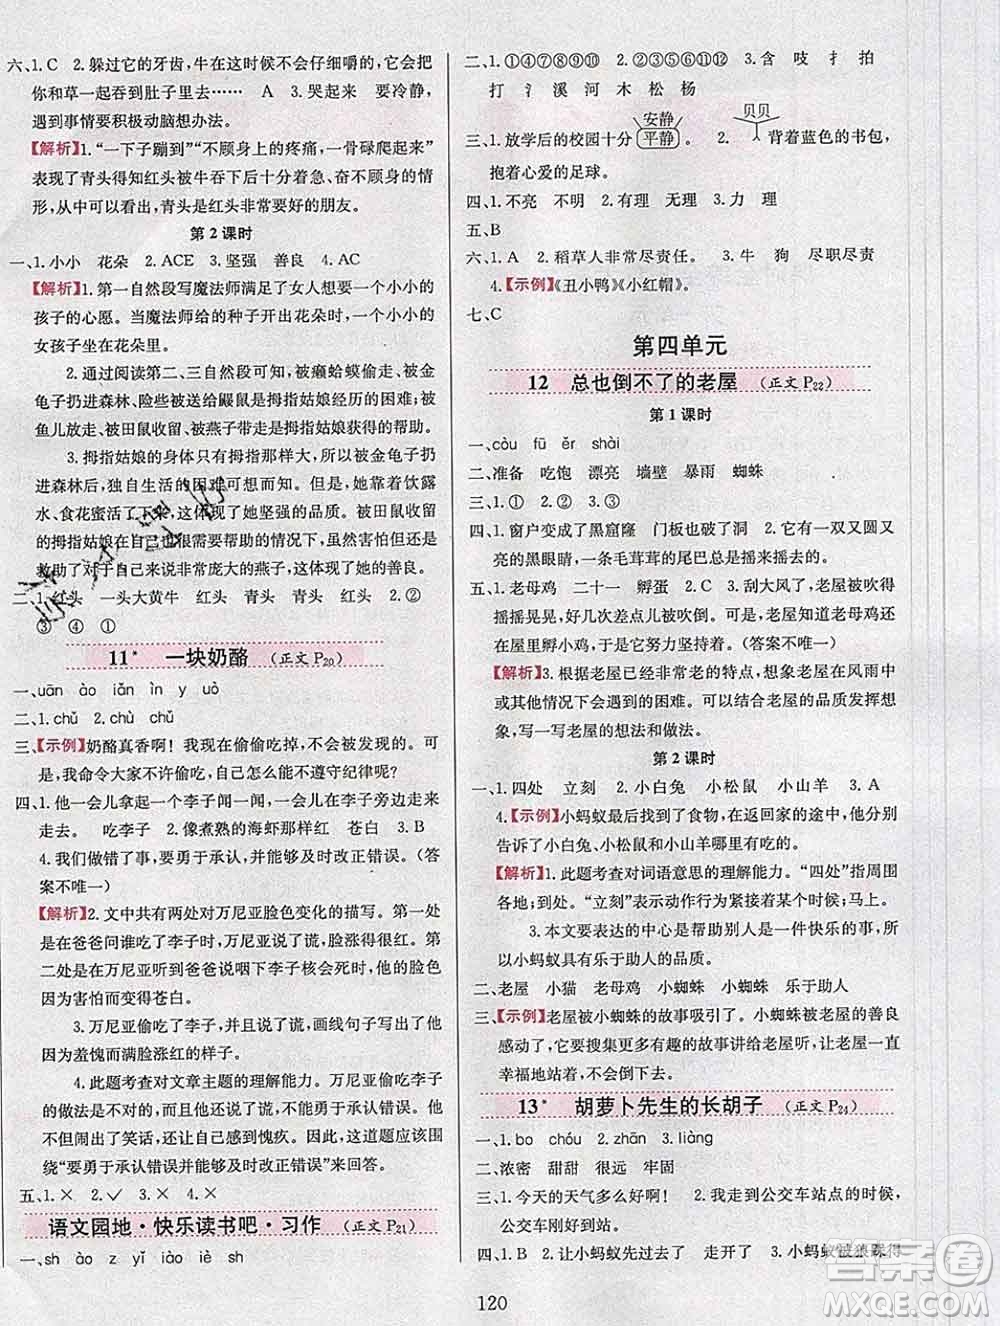 六、1. C　2. 躲过它的牙齿,牛在这时候不会仔细嚼的,它会把
你和草一起吞到肚子里去……　A　3. 哭起来　要冷静,
遇到事情要积极动脑想办法。
【解析】1.“一下子蹦到”“不顾身上的疼痛,一骨碌爬起来”
表现了青头得知红头被牛吞下后十分着急、奋不顾身的情
形,从中可以看出,青头和红头是非常要好的朋友。
第 2 课时
一、1. 小小　花朵　2. ACE　3. 坚强　善良　4. AC
【解析】1. 第一自然段写魔法师满足了女人想要一个小小的
孩子的心愿。当魔法师给的种子开出花朵时,一个小小的
女孩子坐在花朵里。
2. 通过阅读第二、三自然段可知,被癞蛤蟆偷走、被金
龟子扔进森林、险些被送给鼹鼠是拇指姑娘经历的困难,被
鱼儿放走、被田鼠收留、被燕子带走是拇指姑娘获得的帮助。
3. 拇指姑娘的身体只有拇指那样大,所以被金龟子扔
进森林后,独自生活的困难可想而知,但是,她靠着饮露
水、食花蜜活了下来,突出了她坚强的品质。被田鼠收留的
拇指姑娘在没有得到任何帮助的情况下,想尽一切办法,
救助了对于自己来说非常庞大的燕子,体现了她的善良。
二、1. 红头　一头大黄牛　红头　青头　青头　红头　2. ②
③　④　①
11*　一块奶酪　(正文 P20)
一、uān　ào　iǎn　ìn　y　uò
二、1. chǔ　2. chù　chǔ
三、【示例】奶酪真香啊！我现在偷偷吃掉,不会有人知道。可
是,我命令大家不许偷吃,自己怎么能不遵守纪律呢?
四、1. 他一会儿拿起一个李子闻一闻,一会儿在李子旁边走来
走去。　吃李子　2. 像煮熟的海虾那样红　苍白　3. B
4. 我们做错了事,要勇于承认,并能够及时改正错误。(答
案不唯一)
【解析】2. 文中共有两处对万尼亚脸色变化的描写。第一处
是在爸爸问谁吃了李子时,万尼亚说了谎,脸色通红。第
二处是在万尼亚听到爸爸说咽下李子核会死时,他的脸色
因为害怕而变得苍白。
3. 万尼亚偷吃了李子,并且说了谎,画线句子写出了他
因为羞愧而满脸涨红的样子。
4. 此题考查对文章主题的理解能力。万尼亚偷吃李子
的做法是不对的,更不对的是,他没有承认错误,反而说谎,
他不但闹出了笑话,还让自己感到愧疚。因此,本题应该围
绕“要勇于承认错误并能够及时改正错误”来回答。
五、1. ×　2. ✓　3. ×　4. ×
语文园地·快乐读书吧·习作　(正文 P21)
一、sh　ào　z　yǐ　iào　iè　sh
二、1. ①④⑤⑨⑩　2. ②③⑥⑦⑧⑪⑫　3. 含　吱　拍
打　氵　溪　河　木　松　杨
安静　贝贝
三、1. 放学后的校园十分 平静 。　2. 背着蓝色的书包,
抱着心爱的足球。
四、1. 不亮　不明　2. 有　理　3. 力　理
五、B
六、1. A　2. 稻草人非常尽责任。　3. 牛　狗　尽职尽责
4.【示例】《丑小鸭》《小红帽》。
七、C
第四单元
12　总也倒不了的老屋　(正文 P22)
第 1 课时
一、còu　fū　ěr　shài
二、准备　吃饱　漂亮　墙壁　暴雨　蜘蛛
三、1. ①　2. ②　3. ①
四、1. 窗户变成了黑窟窿　门板也破了洞　2. 它有一双又圆又
亮的黑眼睛,一条毛茸茸的尾巴总是摇来摇去的。
五、1. 老母鸡　二十一　孵蛋　2. C　3. 刮大风了,老屋被吹得
摇摇晃晃,好几次差点儿被吹倒。老屋知道老母鸡还
在屋里孵小鸡,一直坚持着不倒下。(答案不唯一)
【解析】3. 根据老屋已经非常老的特点,想象老屋在风雨中
或其他情况下会遇到的困难。然后对老屋的品质发挥想
象,写一写老屋的想法和做法。
第 2 课时
一、1. 四处　立刻　2. 小白兔　小松鼠　小山羊　3. A
4.【示例】小蚂蚁最后找到了食物,在返回家的途中,分别
告诉了小白兔、小松鼠和小山羊哪里有吃的。
【解析】1. 此题考查对词语意思的理解能力。“四处”指周围
各地;到处。“立刻”表示动作行为紧接着某个时候;马上。
3. 本文要表达的中心是帮助别人是一件快乐的事,所
以小蚂蚁具有乐于助人的品质。
二、老屋　小猫　老母鸡　小蜘蛛　小蜘蛛　乐于助人
三、【示例】老屋被小蜘蛛的故事吸引了。小蜘蛛被老屋的善良
感动了,它每天都会搜集更多有趣的故事讲给老屋听,老屋一直
幸福地站着,怎么也不会倒下去。
13*　胡萝卜先生的长胡子　(正文 P24)
一、1. bo　chóu　2. zhān　3. liàng
二、浓密　甜甜　很远　牢固
三、1. 今天的天气多么好啊！　2. 我走到公交车站点的时候,
公交车刚好到站。
四、1. B　2. 让小蚂蚁先过去了　走开了　3. 小蚂蚁被狼踩得
120
答案圈
MXQE.COM